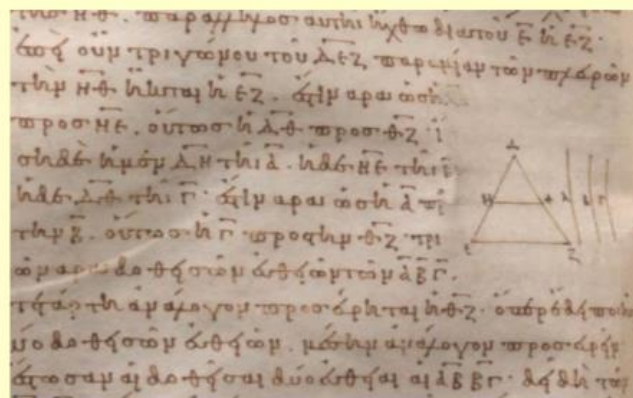 τῆς ΗΘ. παράλληλος αὐτῆι ἤχθω διὰ τοῦ Ε ἡ ΕΖ.
ἐπεὶ οὖν τριγώνου τοῦ ΔΕΖ παρὰ μίαν τῶν πλευρῶν
τὴν ΗΘ ἦκται ἡ ΕΖ. ἔστιν ἄρα ὡς ἡ
πρὸς ΗΕ, οὕτως ἡ ΔΘ πρὸς ΘΖ. ἴ
ση δὲ ἡ μὲν ΔΗ τῆι Α. ἡ δὲ ΗΕ τῆι
ἡ δὲ ΔΘ τῆι Γ. ἔστιν ἄρα ὡς ἡ Α π
τὴν Β. οὕτως ἡ Γ πρὸς τὴν ΘΖ. τρι
ῶν ἄρα δοθεισῶν εὐθειῶν τῶν Α Β Γ.
τετάρτη ἀνάλογον προσεύρηται ἡ ΘΖ. ὅπερ ἔδει ποιῆ
ύο δοθεισῶν εὐθειῶν. μέσην ἀνάλογον προσευρε
ἔστωσαν αἱ δοθεῖσαι δύο εὐθεῖαι αἱ ΑΒ ΒΓ. δεῖ δὴ τῶ
Δ
Η Θ Α Β Γ
Ε Ζ